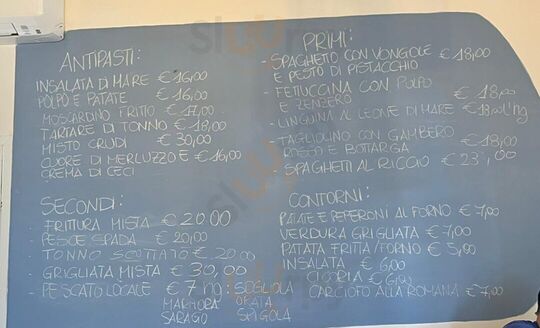 ANTIPASTI:
INSALATA DI MARE €16,00
POLPO E PATATE €16,00
MOSCARDINO FRITTO €14,00
TARTARE DI TONNO €18,00
MISTO CRUDI €30,00
CUORE DI MERLUZZO E €16,00
CREMA DI CECI
SECONDI:
- FRITTURA MISTA €20.00
- PESCE SPADA €20,00
- TONNO SCOTTATO €20.00
- GRIGLIATA MISTA €30,00
- PESCATO LOCALE €7 hg: SOGLIOLA
MARMORA ORATA
SARAGO SPIGOLA
PRIMI:
- SPAGHETTO CON VONGOLE €18,00
E PESTO DI PISTACCHIO
- FETTUCCINA CON POLPO €18,00
E ZENZERO
- LINGUINA AL LEONE DI MARE €18,00 l'hg
- TAGLIOLINO CON GAMBERO €18,00
ROSSO E BOTTARGA
- SPAGHETTI AL RICCIO €23,00
CONTORNI:
PATATE E PEPERONI AL FORNO €7,00
VERDURA GRIGLIATA €7,00
PATATA FRITTA/FORNO €5,00
INSALATA €6,00
CICORIA €6,00
CARCIOFO ALLA ROMANA €7,00